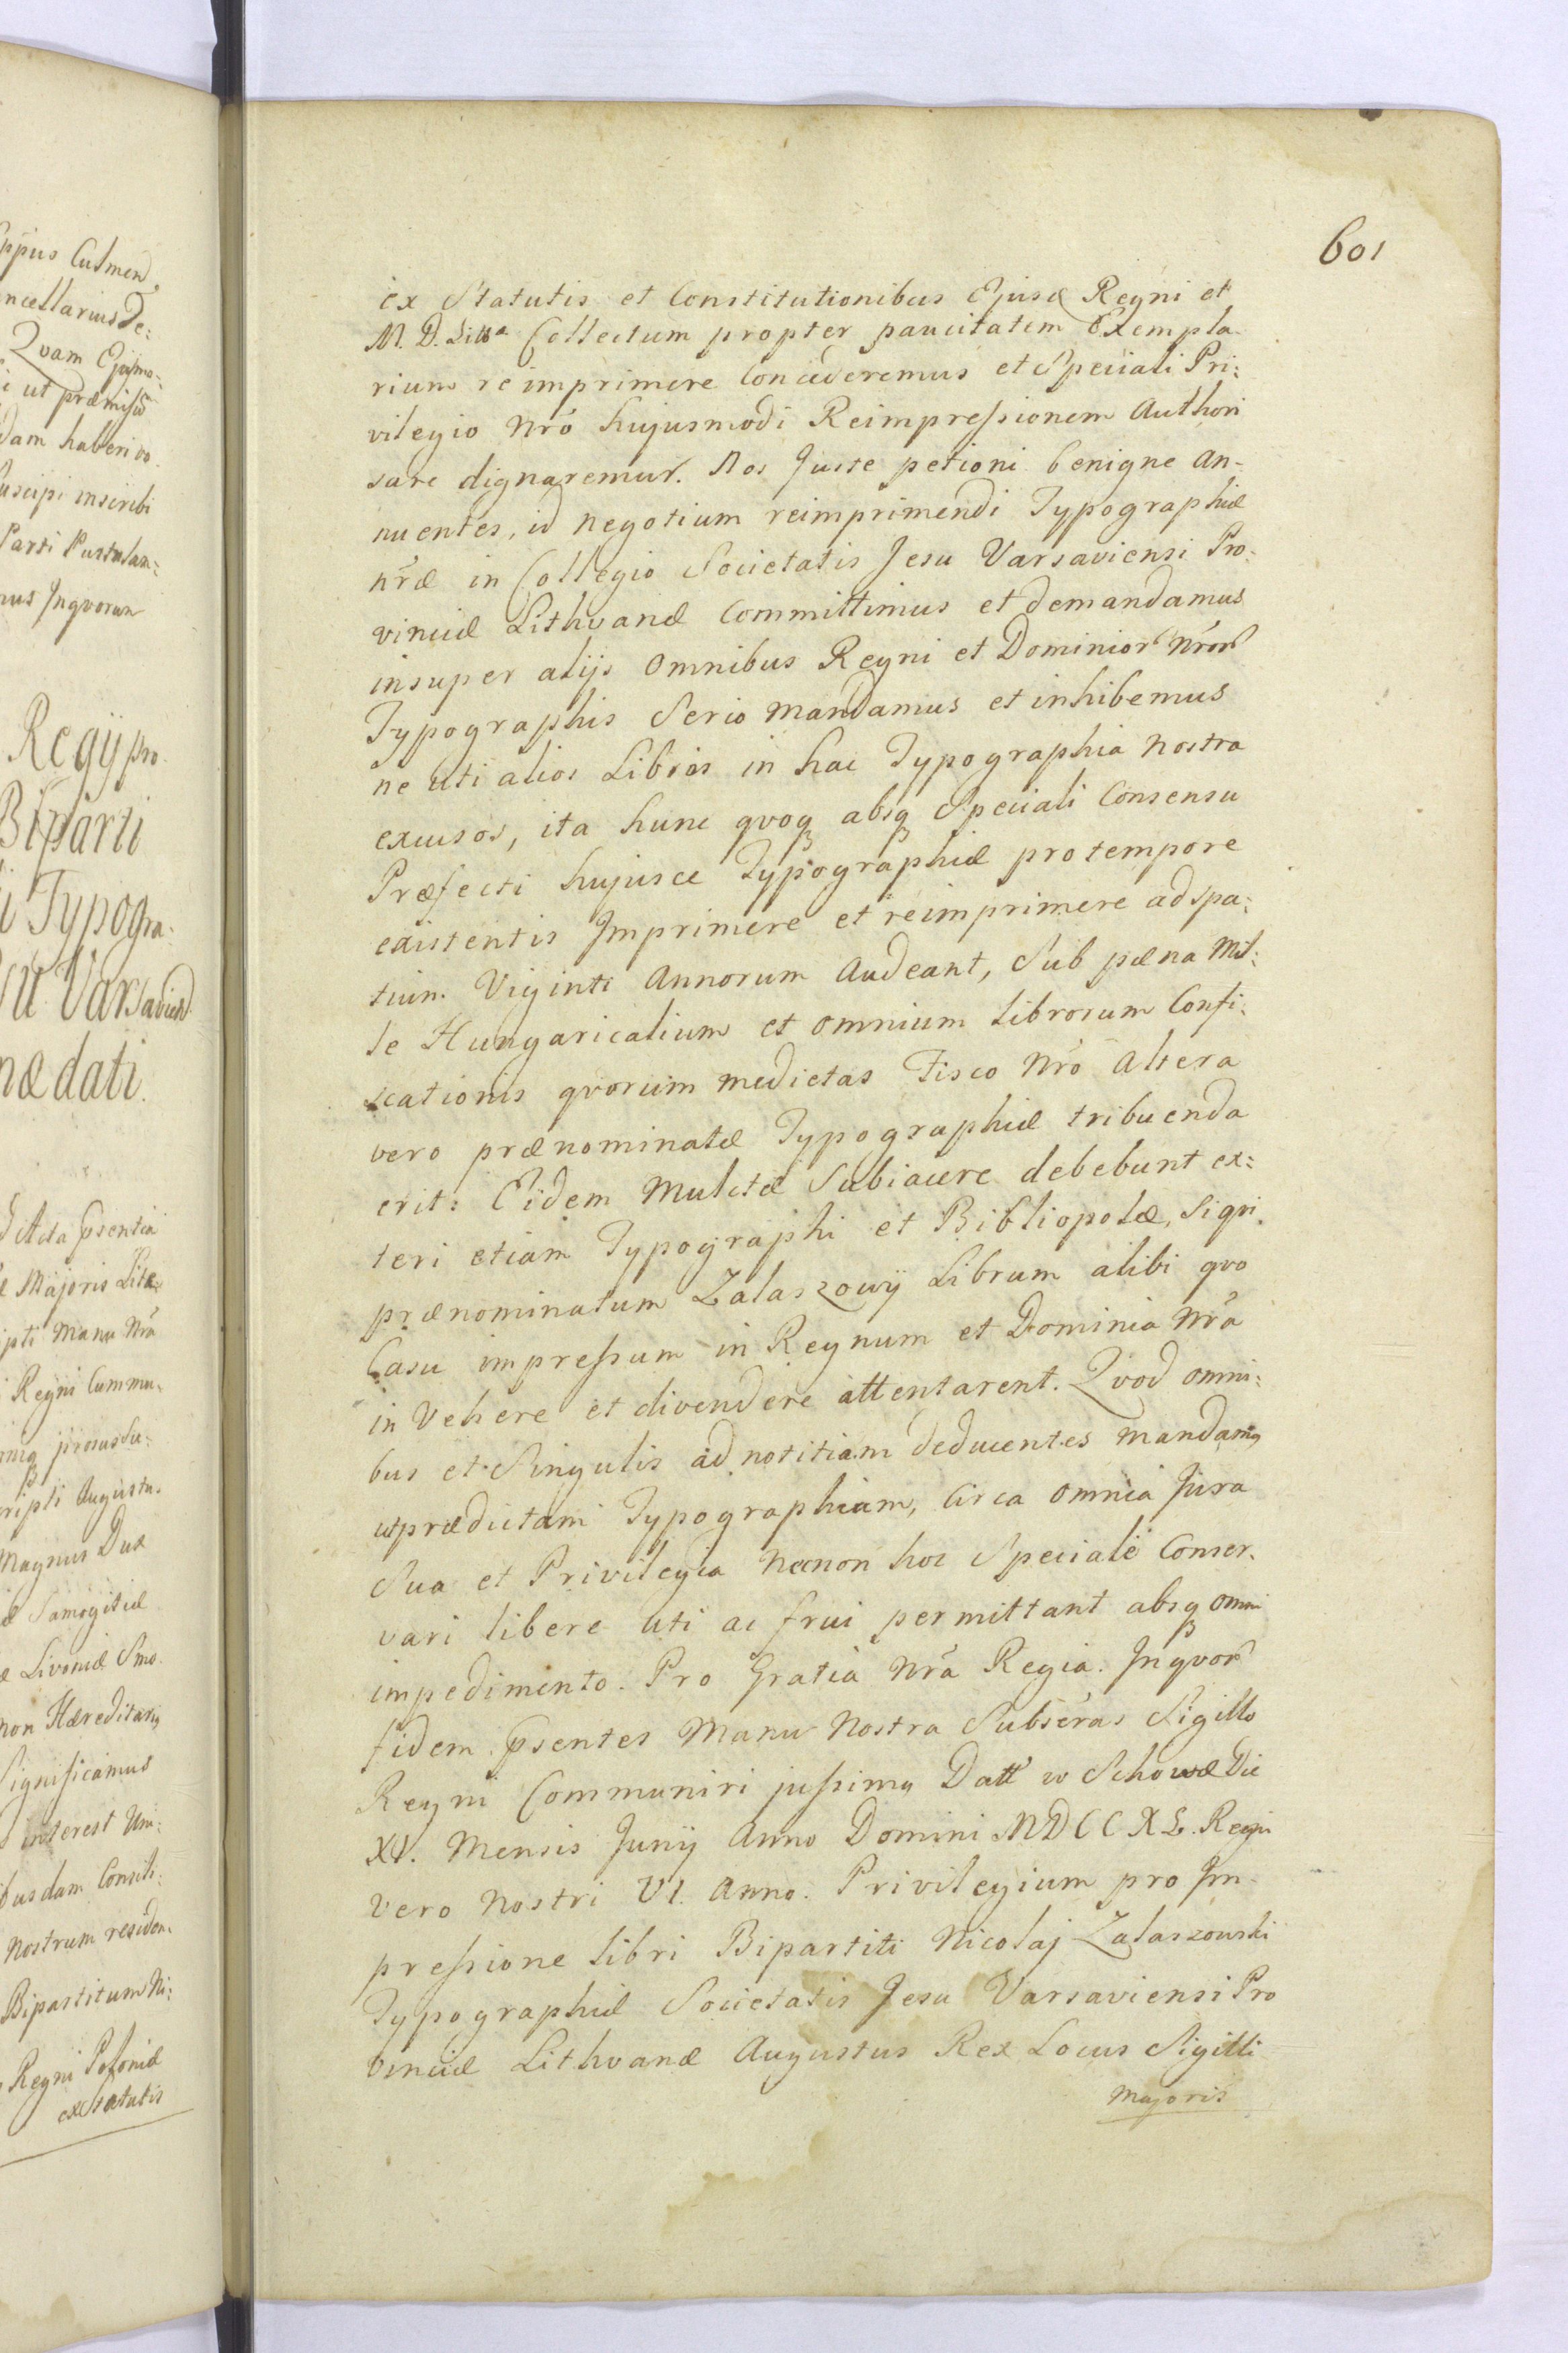 ppus Culmen,
ncellarius De:
Qvam Ejsmo:
i ut præmisū
dam haberi vo
uscipi inscribi
Parti Postulan:
nus Inqvorum
Regÿ pro
Biparti
i Typogra:
su Varsavien
næ dati.
Acta Psentia
Majoris Litæ
ipti Manu Nrā
Regni Cummu:
ripti Augustu.
Magnus Dux
æ Samogitiæ
æ Livoniæ Smo.
non Hæreditariq
Significamus
interest Uni:
busdam Consili:
Nostrum residen.
Bipartitum Ni:
Regni Poloniæ
ex Statutis
601
ex Statutis et Constitutionibus Ejusd Regni et
M. D. Litt^a Collectum propter paucitatem Exempla
rium re imprimere Concederemus et Speciali Pri:
vilegio Nrō hujusmodi Reimpressionem Authori
sare dignaremur. Nos Juste petioni benigne an-
nuentes, id negotium reimprimendi Typographiæ
nrǣ in Collegio Societatis Jesu Varsaviensi Pro:
vinciæ Lithvanæ Committimus et demandamus
insuper alijs omnibus Regni et Dominior Nror
Typographis Serio mandamus et inhibemus
ne uti alios Libros in hac Typographia nostra
excusos, ita hunc qvoq absq Speciali Consensu
Præfecti hujusce Typographiæ pro tempore
existentis Imprimere et reimprimere ad spa:
tium Viginti Annorum Audeant, Sub pæna Mil:
le Hungaricalium et omnium librorum Confi:
scationis qvorum medietas Fisco Nrō Altera
vero prænominatæ Typographiæ tribuenda
erit: Eidem Mulctæ Subiacere debebunt ex:
teri etiam Typographi et Bibliopolæ, Siqvi
prænominatum Zalaszowÿ Librum alibi qvo
Casu impressum in Regnum et Dominia Nrā
in Vehere et divendere attentarent. Qvod omni:
bus et Singulis ad notitiam deducentes mandamq
ut prædictam Typographiam, Circa omnia Jura
Sua et Privilegia Necnon hoc Speciale Conser.
vari libere uti ac frui permittant absq omni
impedimento. Pro Gratia Nrā Regia. In qvor
fidem Psentes Manu Nostra Subscras Sigillo
Regni Communiri jussimq Datt w Schowæ Die
XV. Mensis Junÿ Anno Domini MDCCXL. Regni
vero Nostri VI. Anno. Privilegium pro Im
pressione libri Bipartiti Nicolaj Zalaszowski
Typographiæ Societatis Jesu Varsaviensi Pro
vinciæ Lithvanæ Augustus Rex Locus Sigilli
Majoris